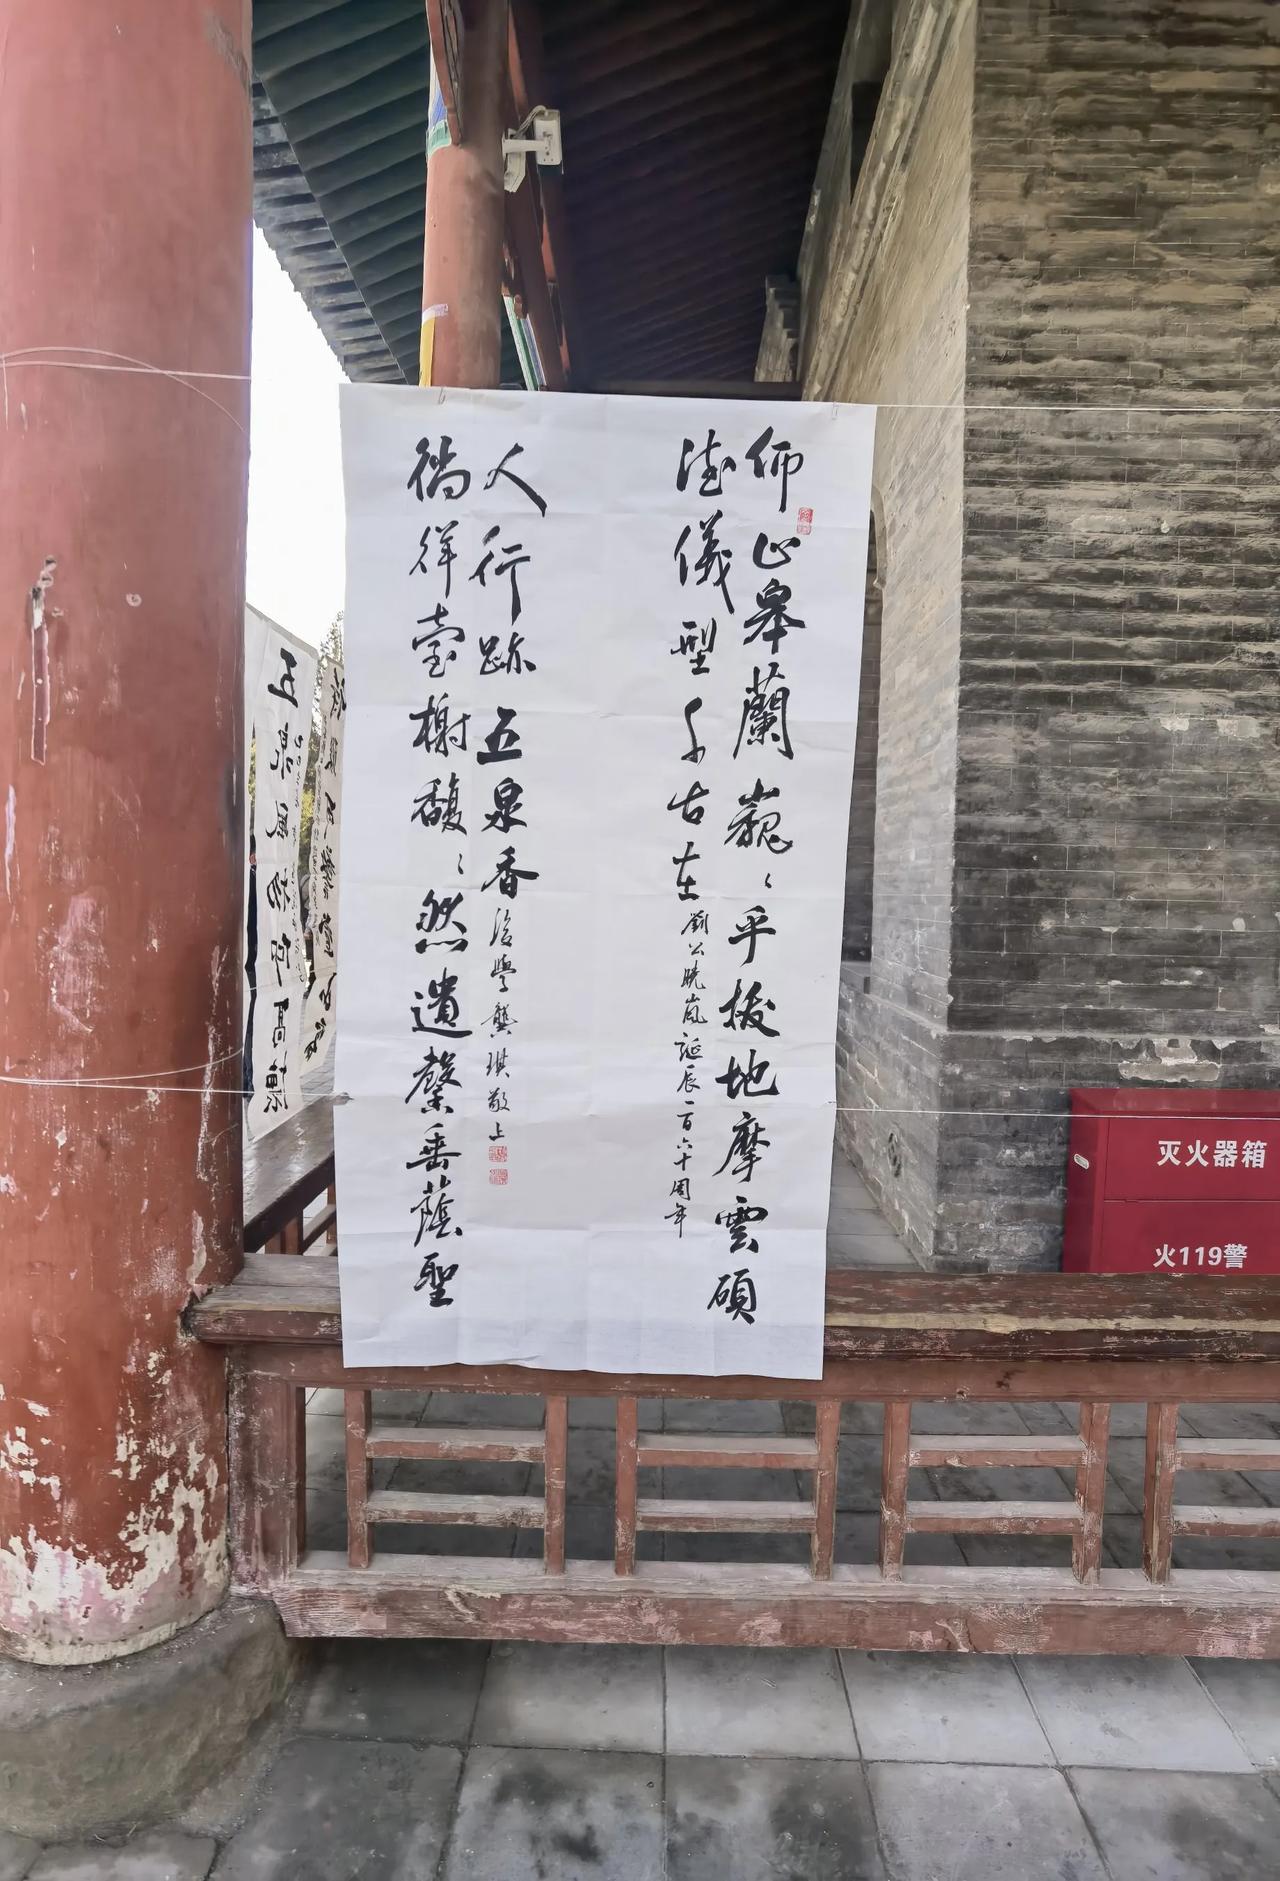 仰止皋蘭巍〻乎拔地摩雲碩
德儀型千古在
劉公曉嵐誕辰一百六十周年
徜徉臺榭馥〻然遺馨垂蔭聖
人行跡五泉香
後學龔琪敬上
五泉風物仰高標
灭火器箱
火119警